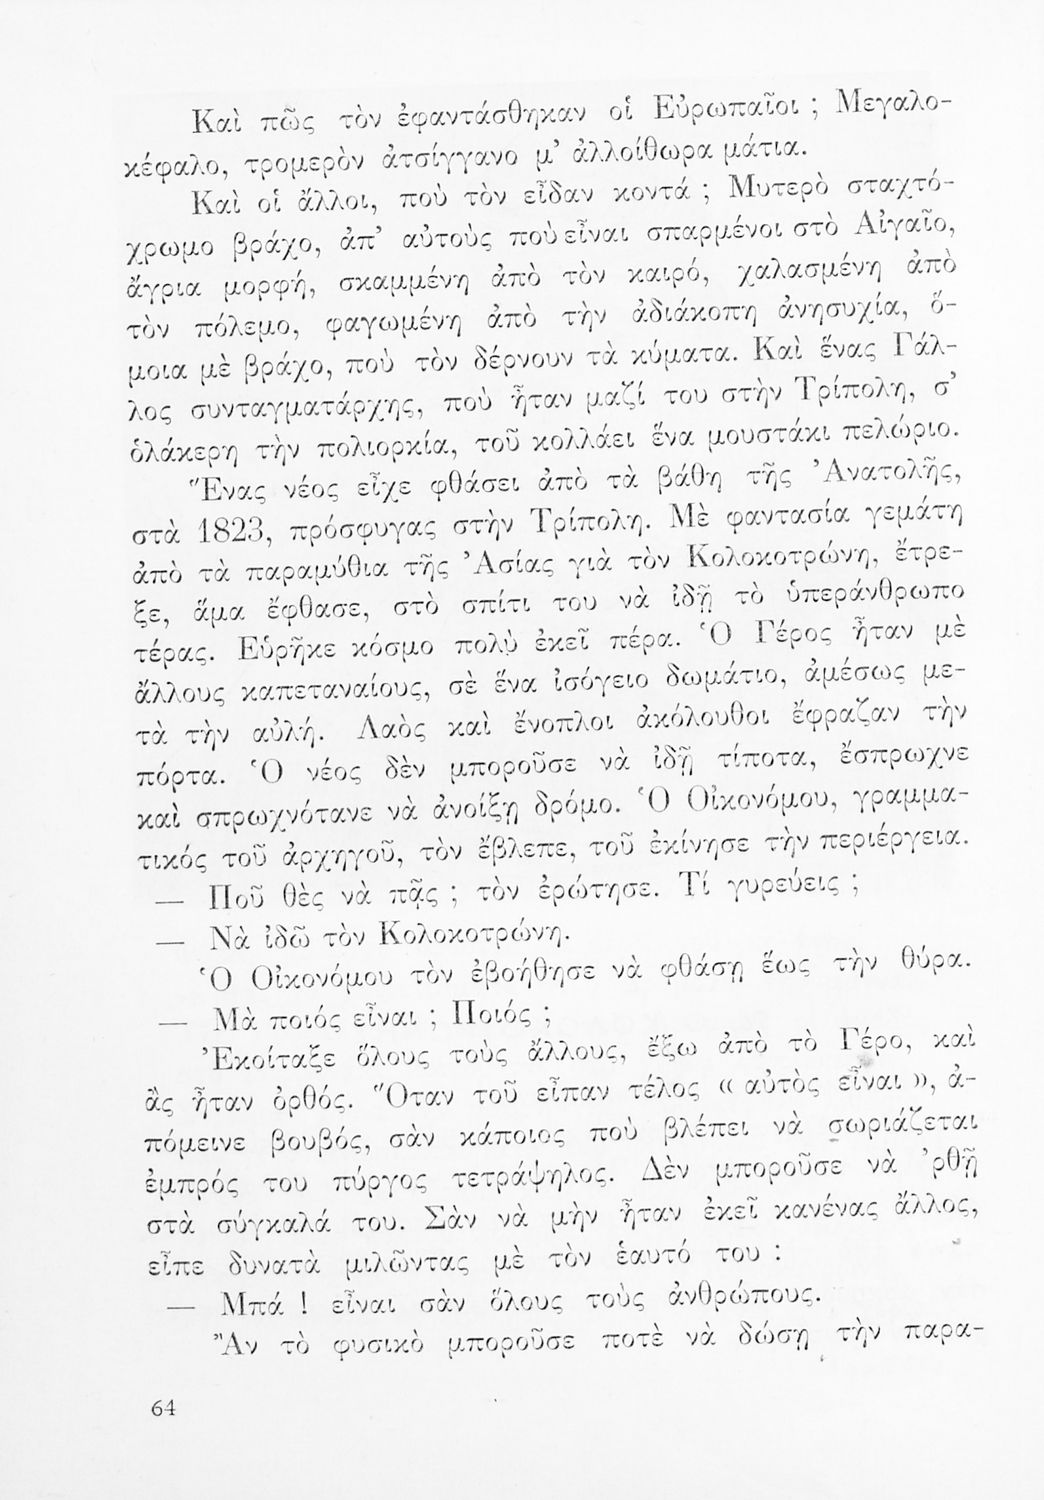 Καὶ πῶς τὸν ἐφαντάσθηκαν οἱ Εὐρωπαῖοι ; Μεγαλο-
κέφαλο, τρομερὸν ἀτσίγγανο μ’ ἀλλοίθωρα μάτια.
Καὶ οἱ ἄλλοι, ποὺ τὸν εἶδαν κοντά ; Μυτερὸ σταχτό-
χρωμο βράχο, ἀπ’ αὐτοὺς ποὺ εἶναι σπαρμένοι στὸ Αἰγαῖο,
ἄγρια μορφή, σκαμμένη ἀπὸ τὸν καιρό, χαλασμένη ἀπὸ
τὸν πόλεμο, φαγωμένη ἀπὸ τὴν ἀδιάκοπη ἀνησυχία, ὅ-
μοια μὲ βράχο, ποὺ τὸν δέρνουν τὰ κύματα. Καὶ ἕνας Γάλ-
λος συνταγματάρχης, ποὺ ἦταν μαζί του στὴν Τρίπολη, σ’
ὁλάκερη τὴν πολιορκία, τοῦ κολλάει ἕνα μουστάκι πελώριο.
Ἕνας νέος εἶχε φθάσει ἀπὸ τὰ βάθη τῆς Ἀνατολῆς,
στὰ 1823, πρόσφυγας στὴν Τρίπολη. Μὲ φαντασία γεμάτη
ἀπὸ τὰ παραμύθια τῆς Ἀσίας γιὰ τὸν Κολοκοτρώνη, ἔτρε-
ξε, ἅμα ἔφθασε, στὸ σπίτι του νὰ ἰδῇ τὸ ὑπεράνθρωπο
τέρας. Εὑρῆκε κόσμο πολὺ ἐκεῖ πέρα. Ὁ Γέρος ἦταν μὲ
ἄλλους καπεταναίους, σὲ ἕνα ἰσόγειο δωμάτιο, ἀμέσως με-
τὰ τὴν αὐλή. Λαὸς καὶ ἔνοπλοι ἀκόλουθοι ἔφραζαν τὴν
πόρτα. Ὁ νέος δὲν μποροῦσε νὰ ἰδῇ τίποτα, ἔσπρωχνε
καὶ σπρωχνότανε νὰ ἀνοίξῃ δρόμο. Ὁ Οἰκονόμου, γραμμα-
τικός τοῦ ἀρχηγοῦ, τὸν ἔβλεπε, τοῦ ἐκίνησε τὴν περιέργεια.
— Ποῦ θὲς νὰ πᾷς ; τὸν ἐρώτησε. Τί γυρεύεις ;
— Νὰ ἰδῶ τὸν Κολοκοτρώνη.
Ὁ Οἰκονόμου τὸν ἐβοήθησε νὰ φθάσῃ ἕως τὴν θύρα.
— Μὰ ποιός εἶναι ; Ποιός ;
Ἐκοίταξε ὅλους τοὺς ἄλλους, ἔξω ἀπὸ τὸ Γέρο, καὶ
ἂς ἦταν ὀρθός. Ὅταν τοῦ εἶπαν τέλος « αὐτὸς εἶναι », ἀ-
πόμεινε βουβός, σὰν κάποιος ποὺ βλέπει νὰ σωριάζεται
ἐμπρός του πύργος τετράψηλος. Δὲν μποροῦσε νὰ ’ρθῇ
στὰ σύγκαλά του. Σὰν νὰ μὴν ἦταν ἐκεῖ κανένας ἄλλος,
εἶπε δυνατὰ μιλῶντας μὲ τὸν ἑαυτό του :
— Μπά ! εἶναι σὰν ὅλους τοὺς ἀνθρώπους.
Ἂν τὸ φυσικὸ μποροῦσε ποτὲ νὰ δώσῃ τὴν παρα-
64